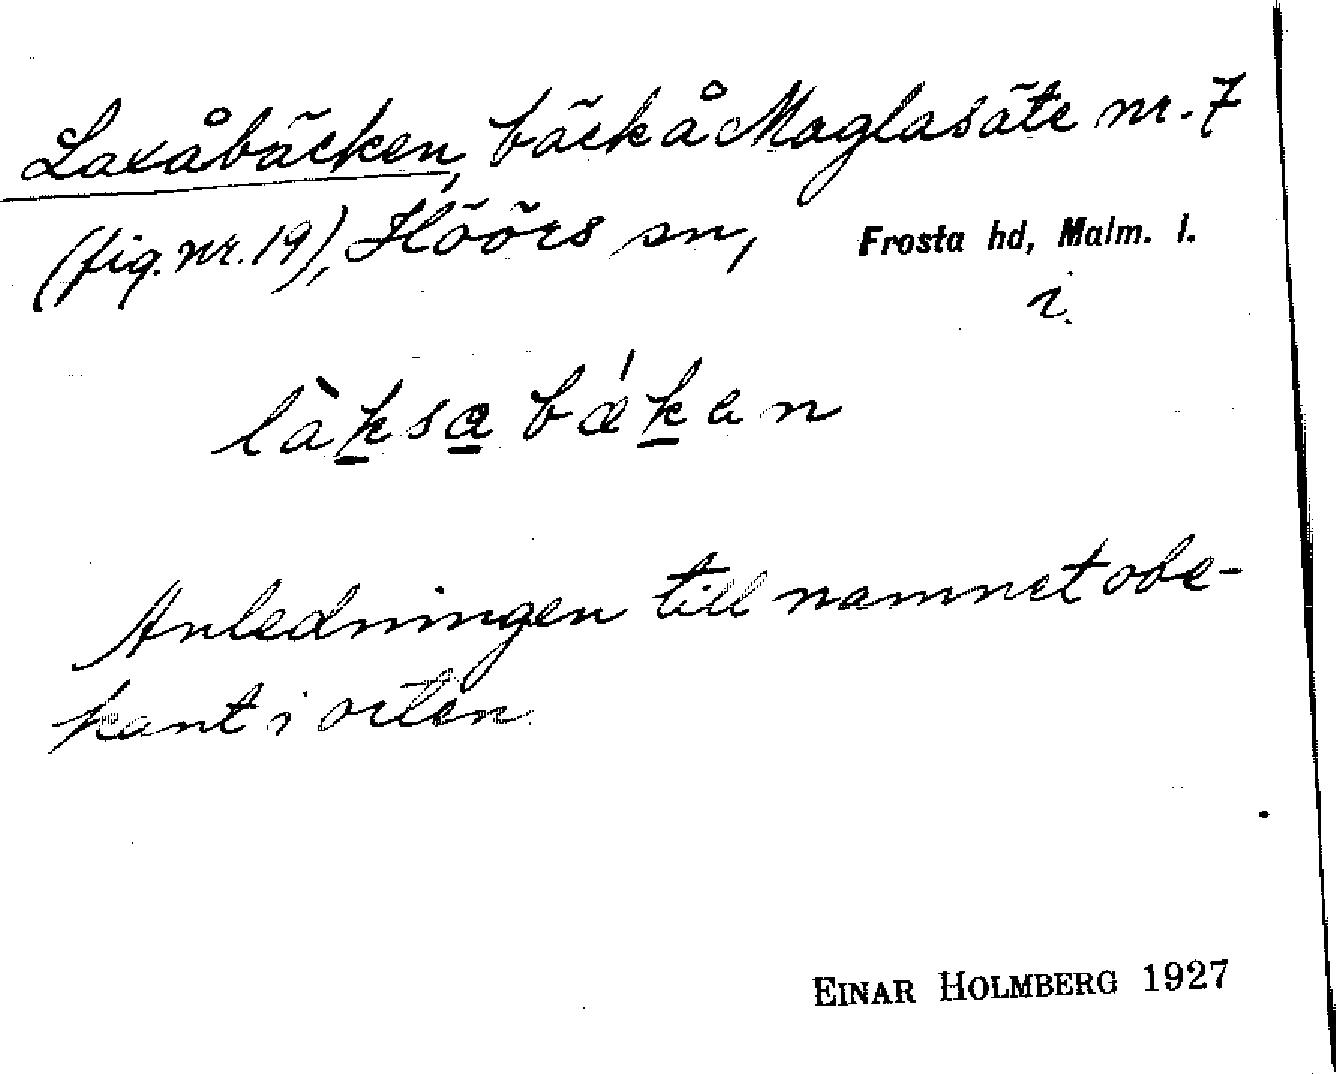 Laxåbäcken, bäck å Maglasäte nr. 7
(fig. nr. 19), Höörs sn, Frosta hd, Malm. l.
i.
làksa bækan
Anledningen till namnet obe-
kant i orten.
EINAR HOLMBERG 1927